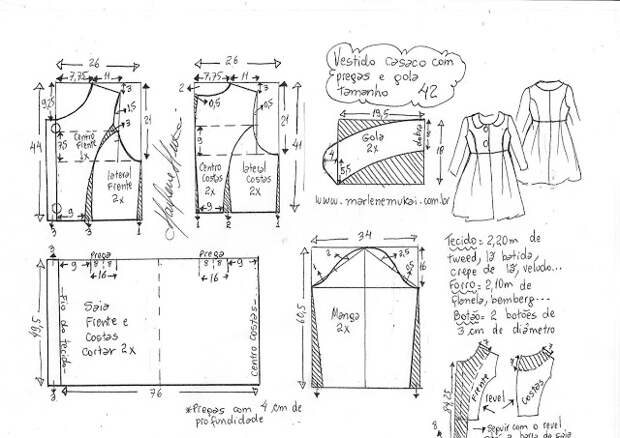 Vestido Casaco com
pregas e gola
Tamanho 42
26
7,75
11
9,25
3
3
1,5
44
7,5
21
Centro
Frente
1x
lateral
Frente
2x
9
3
3
1
Marlene Mukai
26
7,75
11
2
3
0,5
0,5
21
41
Centro
Costas
2x
lateral
Costas
2x
9
1
2
1
19,5
Gola
2x
dobra
8
18
4
5,5
www.marlenemukai.com.br
3
Prega
9
8
8
16
Prega
8
8
16
3
49,5
Fio do tecido
Saia
Frente e
Costas
Cortar 2x
centro costas
76
*Pregas com 4 cm de
profundidade
34
2
2,5
0,5
16
60,5
Manga
2x
1
Tecido = 2,20m de
tweed, lã batida,
crepe de lã, veludo...
Forro = 2,10m de
flanela, bemberg...
Botão = 2 botões de
3 cm de diâmetro
7
7
Frente
revel
Costas
54,25
8
→ Seguir com o revel